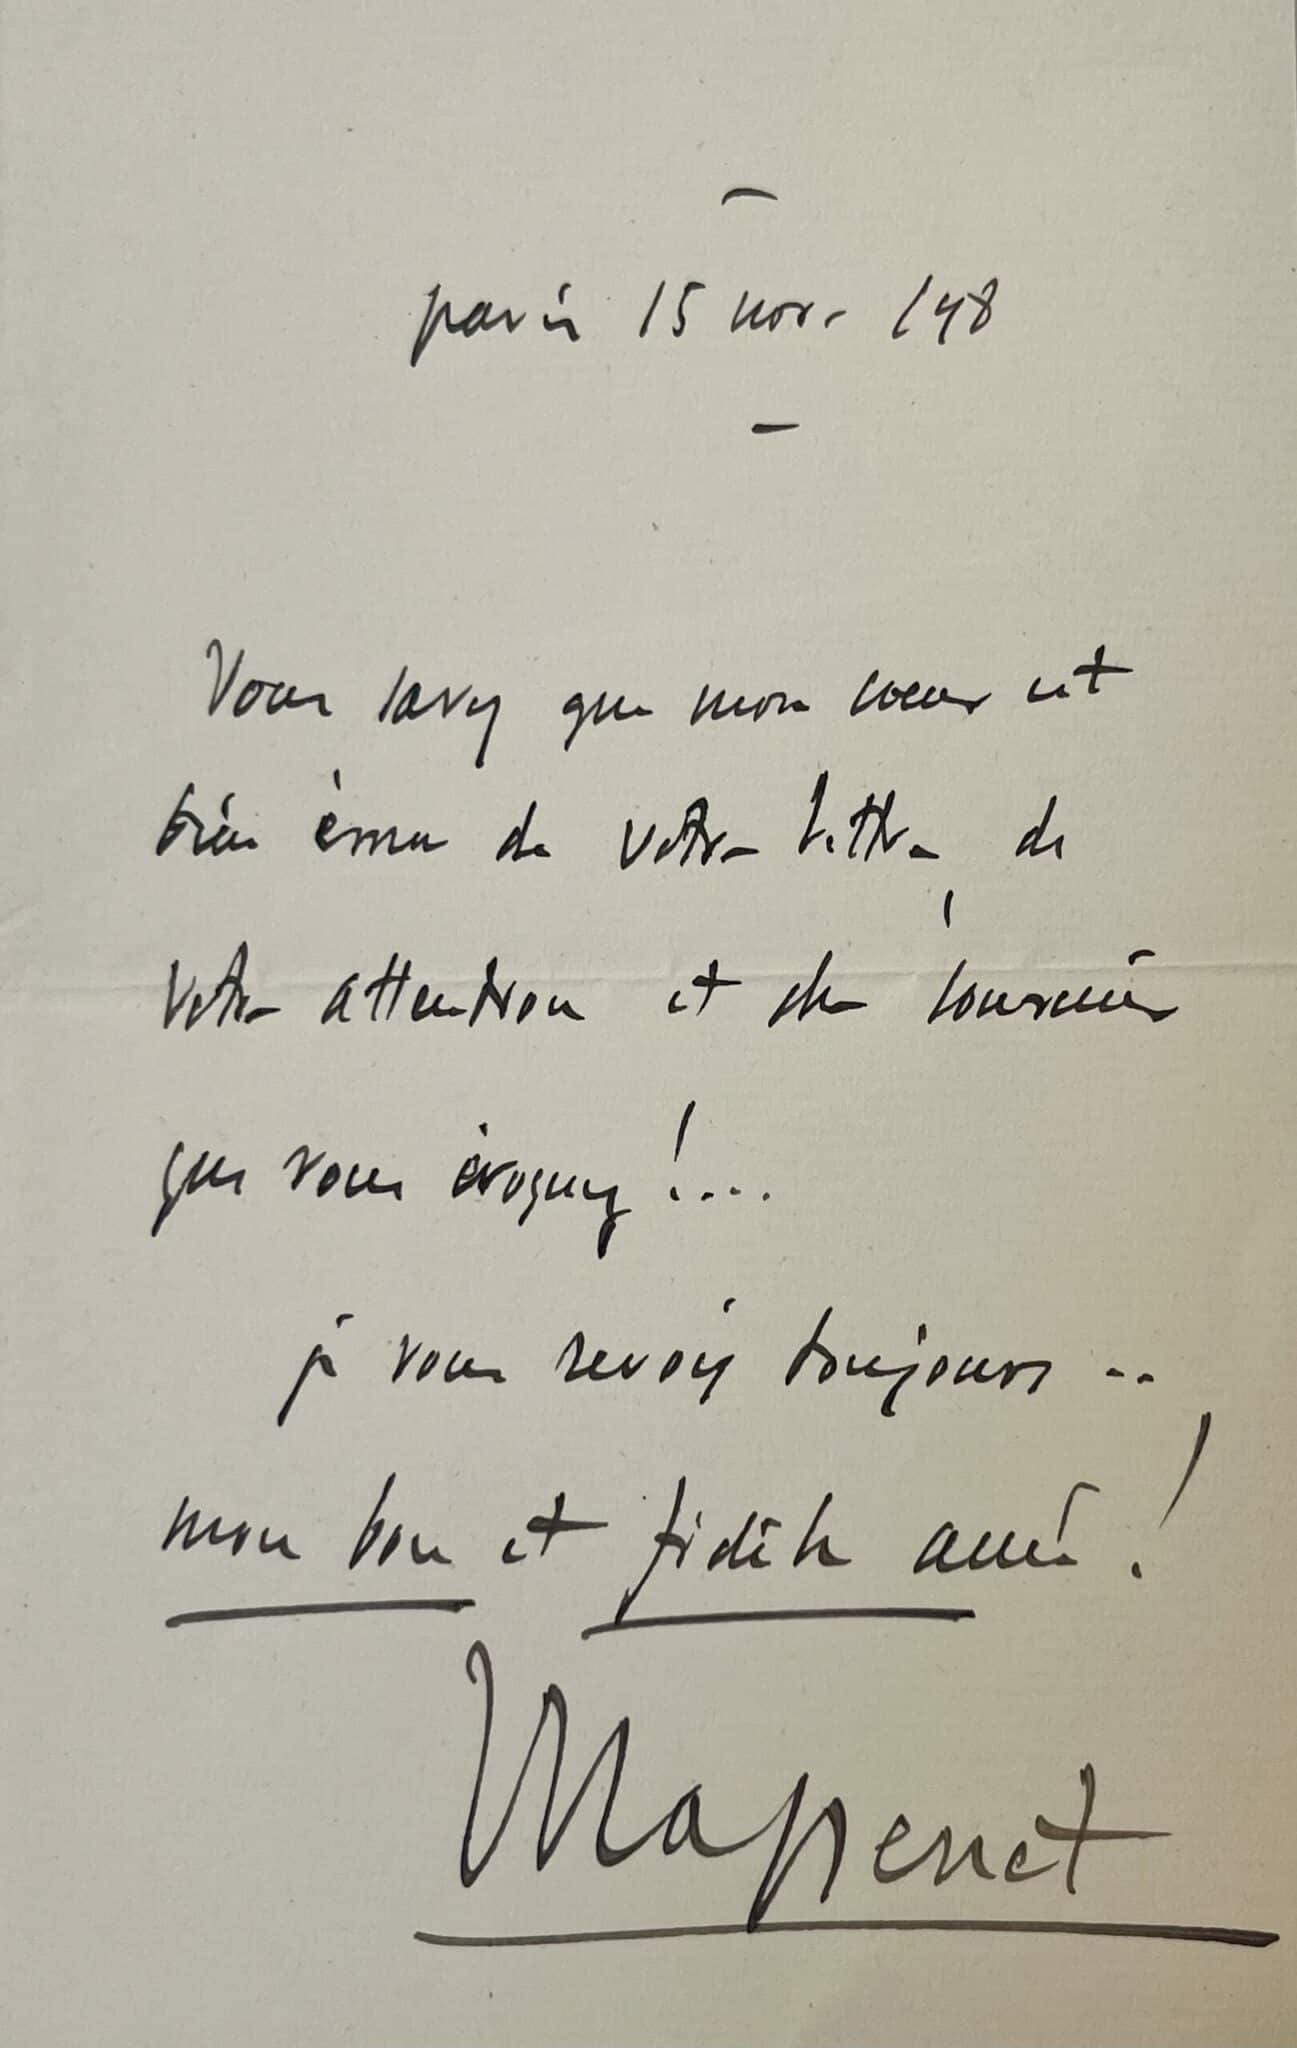 paris 15 nov.
Vous savez que mon cœur est
bien ému de votre lettre de
votre attention et du souvenir
que vous évoquez !....
je vous revois toujours ..
mon bon et fidèle ami !
Massenet